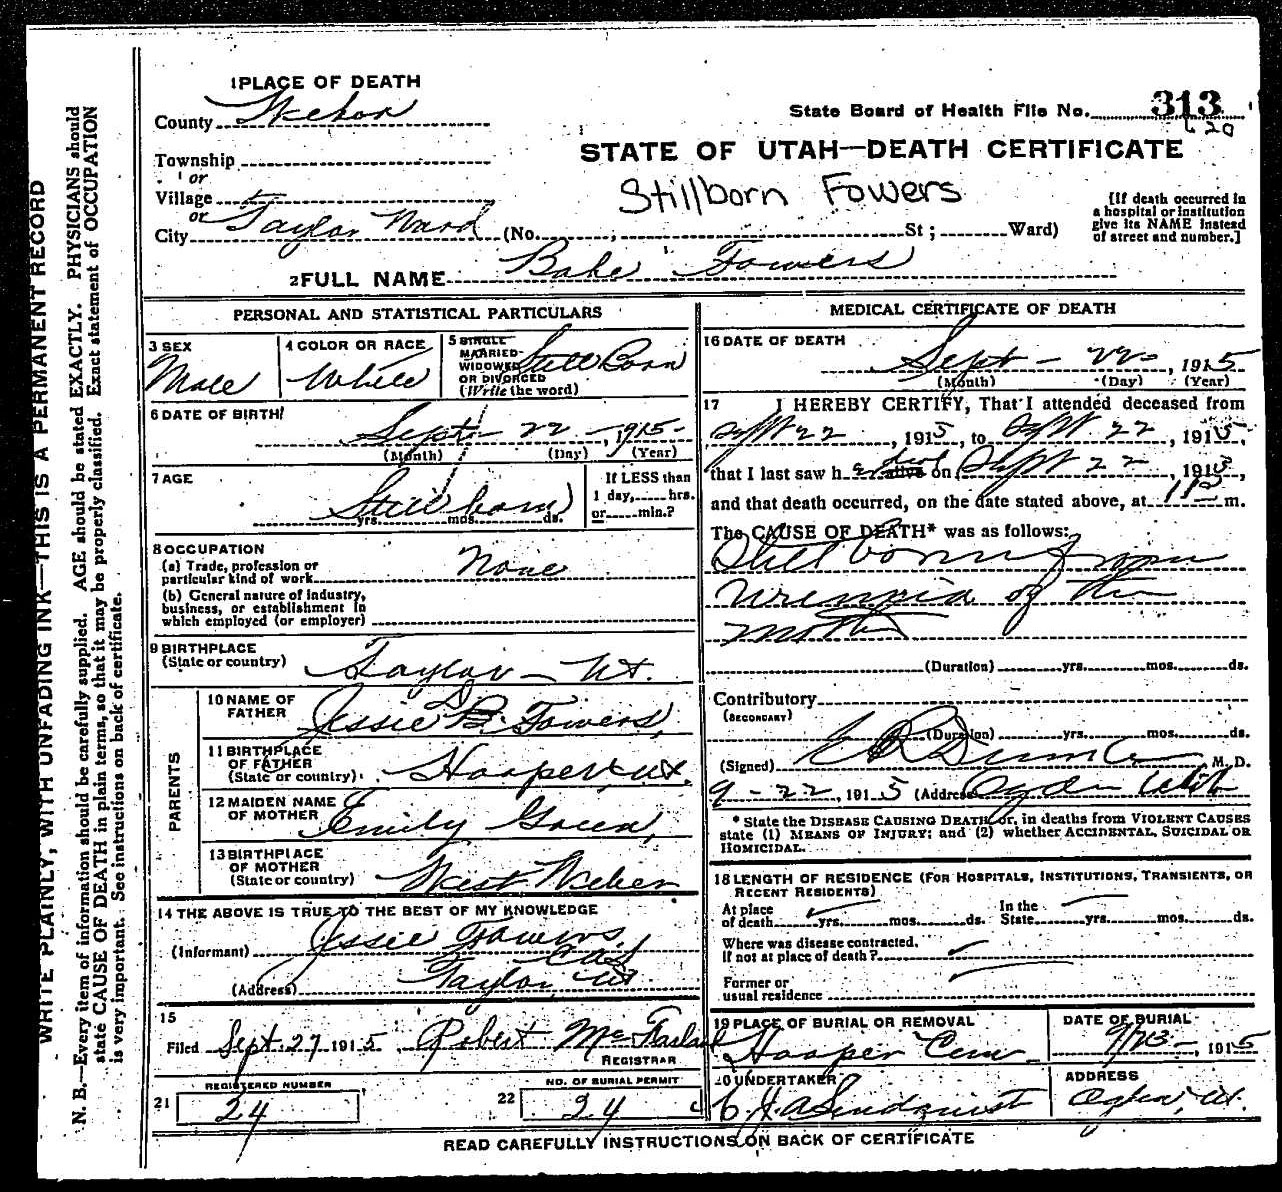 1 PLACE OF DEATH
County Weber
State Board of Health File No. 313
620
STATE OF UTAH—DEATH CERTIFICATE
Township
or
Village
or
City Taylor Ward (No. ; St ; Ward)
Stillborn Fowers
[If death occurred in
a hospital or institution
give its NAME instead
of street and number.]
2 FULL NAME Babe Fowers
PERSONAL AND STATISTICAL PARTICULARS
3 SEX
Male
4 COLOR OR RACE
White
5 SINGLE
MARRIED
WIDOWED
OR DIVORCED
(Write the word)
Still Born
6 DATE OF BIRTH
Sept 22 - 1915
(Month) (Day) (Year)
7 AGE
Still born
yrs. mos. ds.
If LESS than
1 day, hrs.
or min.?
8 OCCUPATION
(a) Trade, profession or
particular kind of work None
(b) General nature of industry,
business, or establishment in
which employed (or employer)
9 BIRTHPLACE
(State or country) Taylor - Ut.
PARENTS
10 NAME OF
FATHER Jessie Fowers,
11 BIRTHPLACE
OF FATHER
(State or country) Hooper, Ut.
12 MAIDEN NAME
OF MOTHER Emily Green,
13 BIRTHPLACE
OF MOTHER
(State or country) West Weber
14 THE ABOVE IS TRUE TO THE BEST OF MY KNOWLEDGE
(Informant) Jessie Fowers
(Address) Taylor, Ut
15
Filed Sept. 27 1915, Robert McFarland
REGISTRAR
REGISTERED NUMBER
21 24
NO. OF BURIAL PERMIT
22 24
MEDICAL CERTIFICATE OF DEATH
16 DATE OF DEATH
Sept - 22 -, 1915
(Month) (Day) (Year)
17 I HEREBY CERTIFY, That I attended deceased from
Sept 22, 1915, to Sept 22, 1915,
that I last saw h alive dead on Sept 22, 1915,
and that death occurred, on the date stated above, at m.
The CAUSE OF DEATH* was as follows:
Still born from
Uremia of the
mother
(Duration) yrs. mos. ds.
Contributory
(SECONDARY)
(Duration) yrs. mos. ds.
(Signed) E R Dumke M. D.
9 - 22, 1915 (Address) Ogden Utah
* State the DISEASE CAUSING DEATH or, in deaths from VIOLENT CAUSES
state (1) MEANS OF INJURY; and (2) whether ACCIDENTAL, SUICIDAL OR
HOMICIDAL.
18 LENGTH OF RESIDENCE (FOR HOSPITALS, INSTITUTIONS, TRANSIENTS, OR
RECENT RESIDENTS)
At place
of death yrs. mos. ds.
In the
State yrs. mos. ds.
Where was disease contracted,
If not at place of death?
Former or
usual residence
19 PLACE OF BURIAL OR REMOVAL
Hooper Cem
DATE OF BURIAL
9/23 -, 1915
20 UNDERTAKER
Lindquist
ADDRESS
Ogden, Ut.
READ CAREFULLY INSTRUCTIONS ON BACK OF CERTIFICATE
WRITE PLAINLY, WITH UNFADING INK—THIS IS A PERMANENT RECORD
N. B.—Every item of information should be carefully supplied. AGE should be stated EXACTLY. PHYSICIANS should
state CAUSE OF DEATH in plain terms, so that it may be properly classified. Exact statement of OCCUPATION
is very important. See instructions on back of certificate.